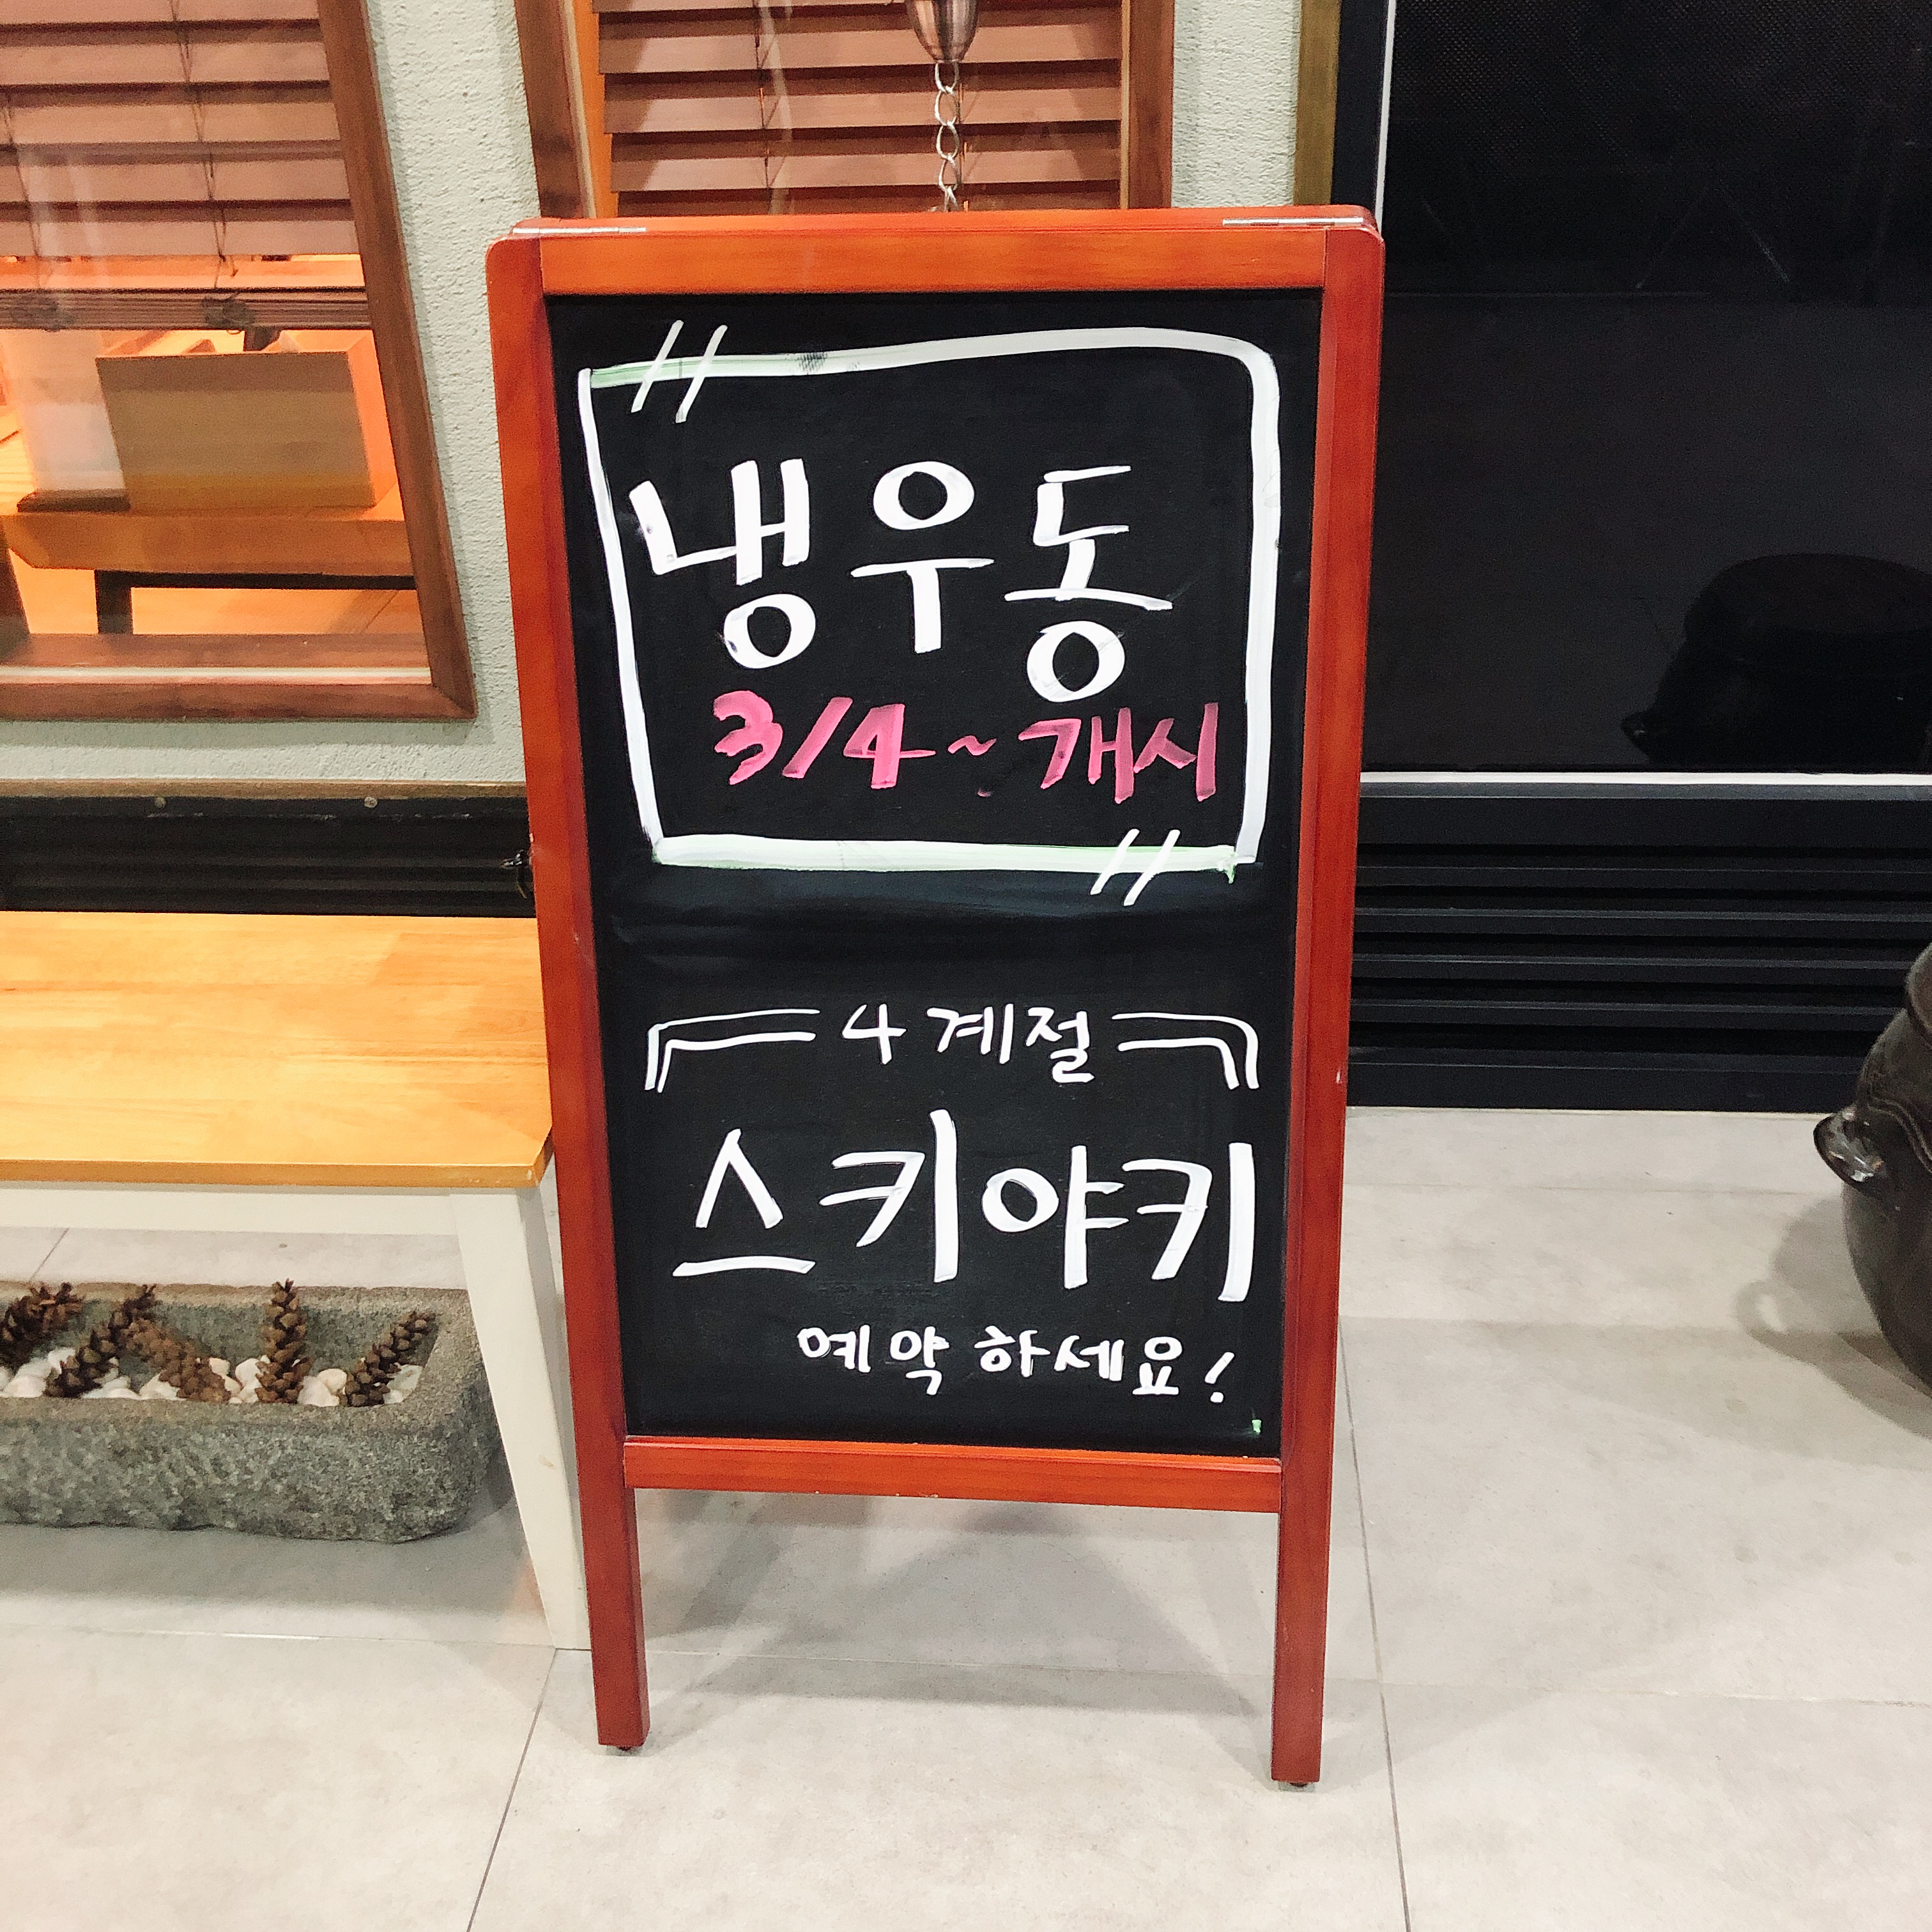 냉우동
3/4~개시
4계절
스키야키
예약하세요!